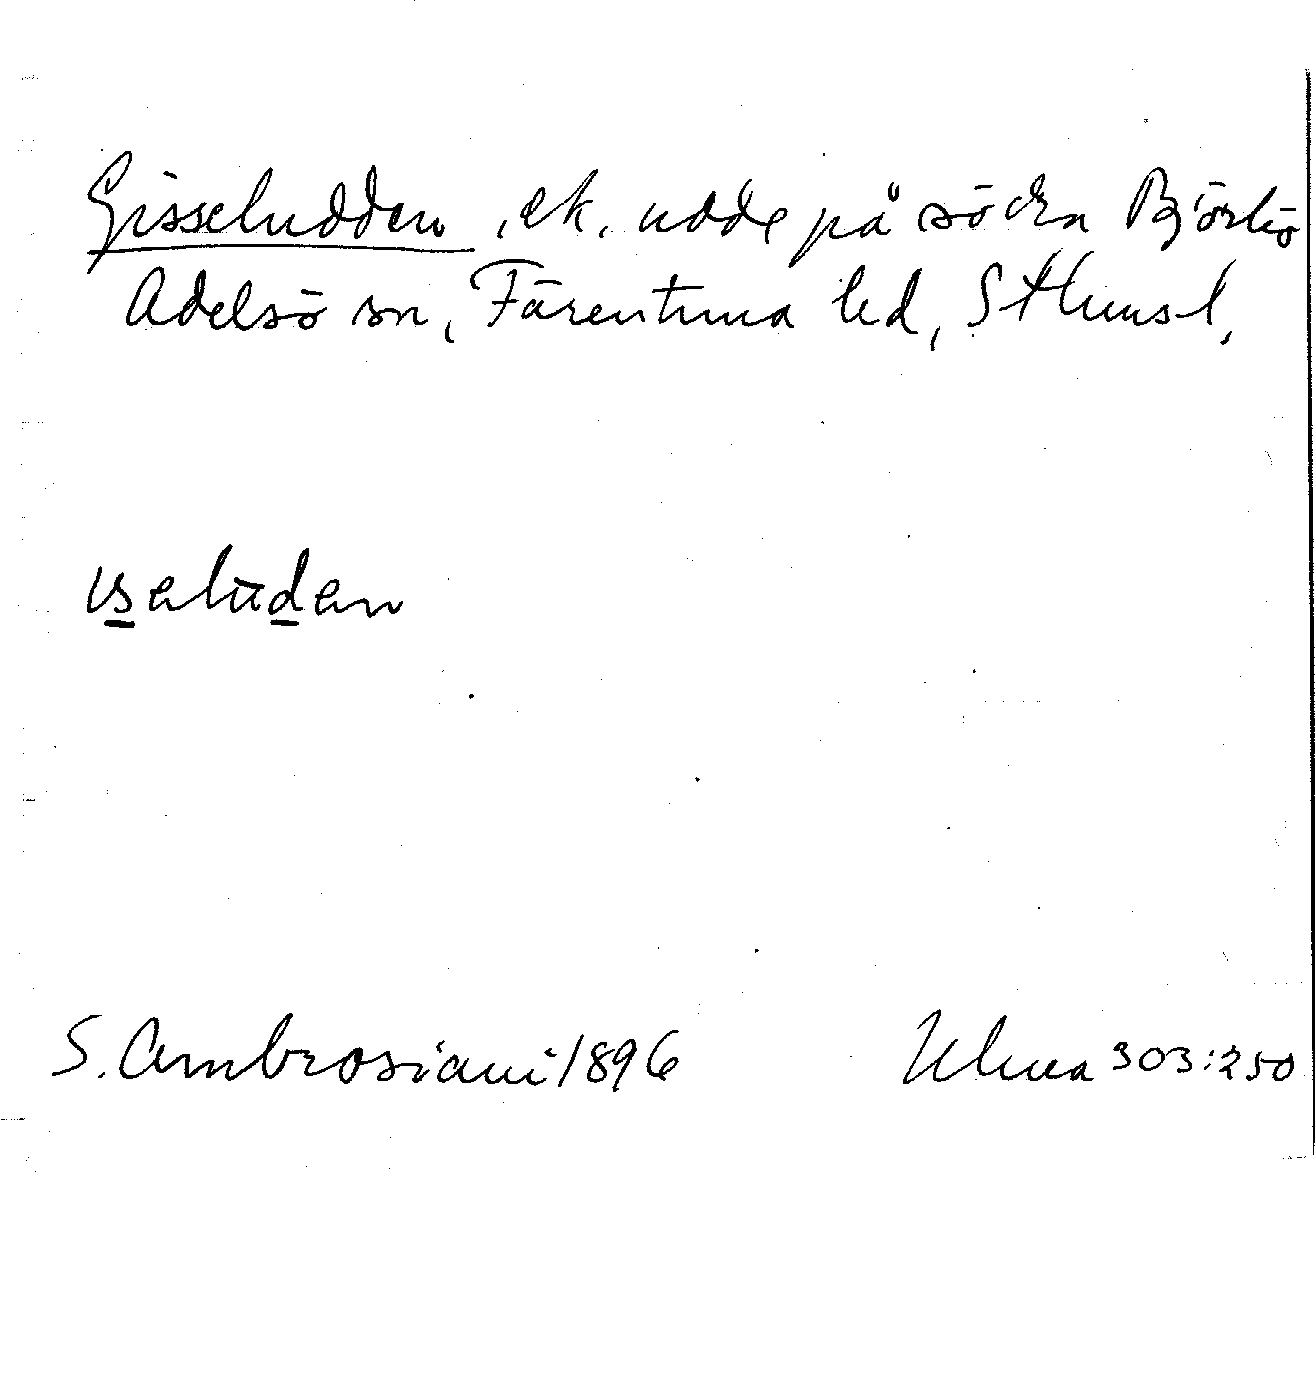 Gisseludden, ek. udde på södra Björkö
Adelsö sn, Färentuna hd, Sthmsl,
ɩseluden
S. Ambrosiani 1896
Ulma 303:250